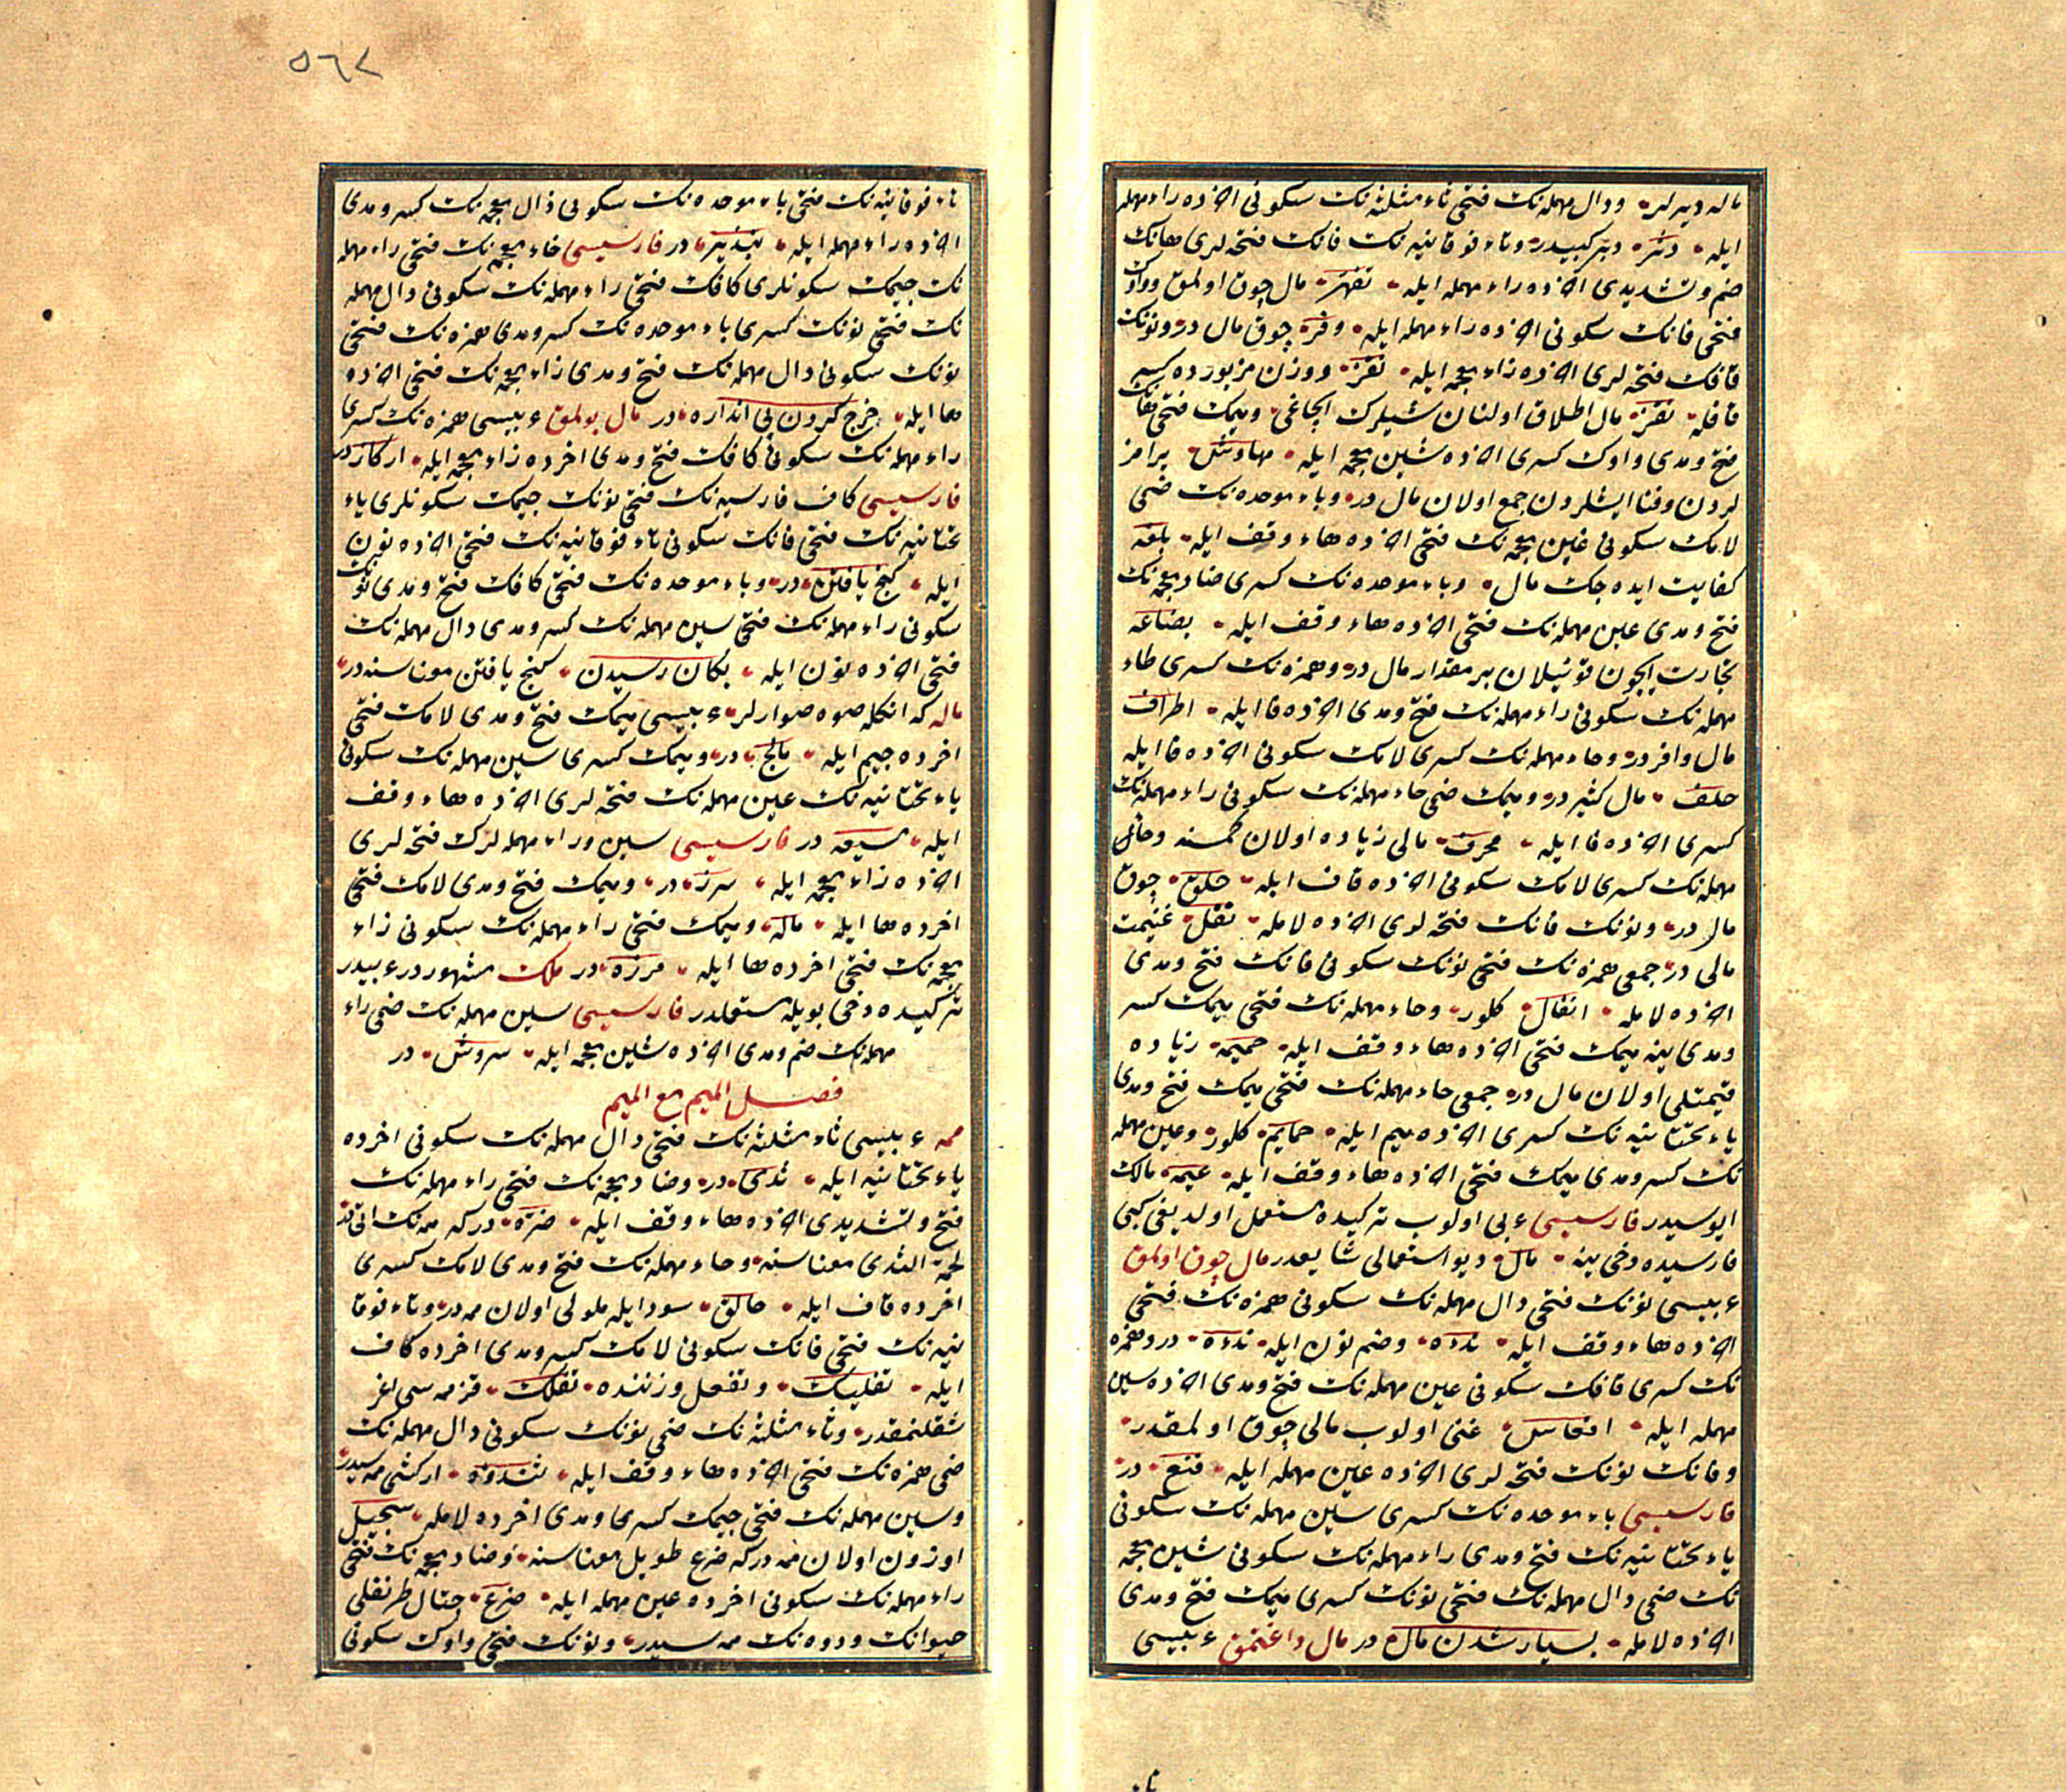 ماله دیرلر ودال مهمله‌نک فتحی ثاء مثلثه‌نک سکونی اخرده راء مهمله
ایله دثر دبر کبیدر وتاء فوقانیه‌نک فانک فتحه‌لری هانک
ضم وتشدیدی اخرده راء مهمله ایله تفهر مال چوق اولمق وواوک
فتحی فانک سکونی اخرده راء مهمله ایله وفر چوق مال در ونونک
قافک فتحه‌لری اخرده زاء معجمه ایله نقز ووزن مزبورده کسر
قافله نقز مال اطلاق اولنان شیلرک الچاغی ومیمک فتحی هانک
فتح ومدی واوک کسری اخرده شین معجمه ایله مهاوش برامز
لردن وفنا ایشلردن جمع اولان مال در وباء موحده‌نک ضمی
لامک سکونی غین معجمه‌نک فتحی اخرده هاء وقف ایله بلغه
کفایت ایده‌جک مال وباء موحده‌نک کسری ضاد معجمه‌نک
فتح ومدی عین مهمله‌نک فتحی اخرده هاء وقف ایله بضاعه
تجارت ایچون قونیلان بر مقدار مال در وهمزه‌نک کسری طاء
مهمله‌نک سکونی راء مهمله‌نک فتح ومدی اخرده فا ایله اطراف
مال وافر در وحاء مهمله‌نک کسری لامک سکونی اخرده فا ایله
حلف مال کثیر در ومیمک ضمی حاء مهمله‌نک سکونی راء مهمله‌نک
کسری اخرده فا ایله محرف مالی زیاده اولان کمسنه وحاء
مهمله‌نک کسری لامک سکونی اخرده قاف ایله حلق چوق
مال در ونونک فانک فتحه‌لری اخرده لامله نفل غنیمت
مالی در جمعی همزه‌نک فتحی نونک سکونی فانک فتح ومدی
اخرده لامله انفال کلور وحاء مهمله‌نک فتحی میمک کسر
ومدی ینه میمک فتحی اخرده هاء وقف ایله حمیمه زیاده
قیمتلی اولان مال در جمعی حاء مهمله‌نک فتحی میمک فتح ومدی
یاء تحتانیه‌نک کسری اخرده میم ایله حمایم کلور وعین مهمله
نک کسر ومدی میمک فتحی اخرده هاء وقف ایله عیمه مالک
ایوسیدر فارسیسی عربی اولوب ترکیده مستعمل اولدیغی کبی
فارسیده دخی ینه مال دیو استعمالی شایعدر مال چوق اولمق
عربیسی نونک فتحی دال مهمله‌نک سکونی همزه‌نک فتحی
اخرده هاء وقف ایله ندءه وضم نون ایله ندءه در وهمزه
نک کسری قافک سکونی عین مهمله‌نک فتح ومدی اخرده سین
مهمله ایله اقعاس غنی اولوب مالی چوق اولمقدر
وفانک نونک فتحه‌لری اخرده عین مهمله ایله فنع در
فارسیسی باء موحده‌نک کسری سین مهمله‌نک سکونی
یاء تحتانیه‌نک فتح ومدی راء مهمله‌نک سکونی شین معجمه
نک ضمی دال مهمله‌نک فتحی نونک کسری میمک فتح ومدی
اخرده لامله بسیار شدن مال در مال داغتمق عربیسی
تاء فوقانیه‌نک فتحی باء موحده‌نک سکونی ذال معجمه‌نک کسر ومدی
اخرده راء مهمله ایله تبذیر در فارسیسی خاء معجمه‌نک فتحی راء مهمله
نک جیمک سکونلری کافک فتحی راء مهمله‌نک سکونی دال مهمله
نک فتحی نونک کسری باء موحده‌نک کسر ومدی همزه‌نک فتحی
نونک سکونی دال مهمله‌نک فتح ومدی زاء معجمه‌نک فتحی اخرده
ها ایله خرج کردن بی اندازه در مال بولمق عربیسی همزه‌نک کسری
راء مهمله‌نک سکونی کافک فتح ومدی اخرده زاء معجمه ایله ارکاز در
فارسیسی کاف فارسیه‌نک فتحی نونک جیمک سکونلری یاء
تحتانیه‌نک فتحی فانک سکونی تاء فوقانیه‌نک فتحی اخرده نون
ایله کنج یافتن در وباء موحده‌نک فتحی کافک فتح ومدی نونک
سکونی راء مهمله‌نک فتحی سین مهمله‌نک کسر ومدی دال مهمله‌نک
فتحی اخرده نون ایله بکان رسیدن کنج یافتن معناسنه‌در
ماله که انکله صوه صوارلر عربیسی میمک فتح ومدی لامک فتحی
اخرده جیم ایله مالج در ومیمک کسری سین مهمله‌نک سکونی
یاء تحتانیه‌نک عین مهمله‌نک فتحه‌لری اخرده هاء وقف
ایله مسیعه در فارسیسی سین وراء مهمله‌لرک فتحه‌لری
اخرده زاء معجمه ایله سرز در ومیمک فتح ومدی لامک فتحی
اخرده ها ایله ماله ومیمک فتحی راء مهمله‌نک سکونی زاء
معجمه‌نک فتحی اخرده ها ایله مرزه در ملک مشهور در عربیدر
ترکیده دخی بویله مستعملدر فارسیسی سین مهمله‌نک ضمی راء
مهمله‌نک ضم ومدی اخرده شین معجمه ایله سروش در
فصل المیم مع المیم
ممه عربیسی ثاء مثلثه‌نک فتحی دال مهمله‌نک سکونی اخرده
یاء تحتانیه ایله ثدی در وضاد معجمه‌نک فتحی راء مهمله‌نک
فتح وتشدیدی اخرده هاء وقف ایله ضره در که ممه‌نک اتی در
لحمة الثدی معناسنه وحاء مهمله‌نک فتح ومدی لامک کسری
اخرده قاف ایله حالق سود ایله مملو اولان ممه در وتاء فوقا
نیه‌نک فتحی فانک سکونی لامک کسر ومدی اخرده کاف
ایله تفلیک وتفعل وزننده تفلک قز ممه‌سی اغر
شقلنمقدر وثاء مثلثه‌نک ضمی نونک سکونی دال مهمله‌نک
ضمی همزه‌نک فتحی اخرده هاء وقف ایله ثندؤه ار کشی ممه‌سیدر
وسین مهمله‌نک فتحی جیمک کسری ومدی اخرده لامله سجیل
اوزون اولان ممه در که ضرع طویل معناسنه وضاد معجمه‌نک فتحی
راء مهمله‌نک سکونی اخرده عین مهمله ایله ضرع چتال طرنقلی
حیوانک ودوه‌نک ممه‌سیدر ونونک فتحی واوک سکونی